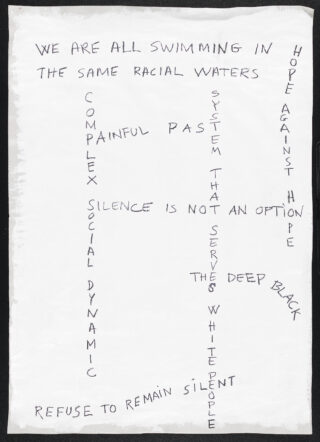 WE ARE ALL SWIMMING IN
THE SAME RACIAL WATERS
HOPE AGAINST HOPE
COMPLEX SOCIAL DYNAMIC
PAINFUL PAST
SYSTEM THAT SERVES WHITE PEOPLE
SILENCE IS NOT AN OPTION
THE DEEP BLACK
REFUSE TO REMAIN SILENT